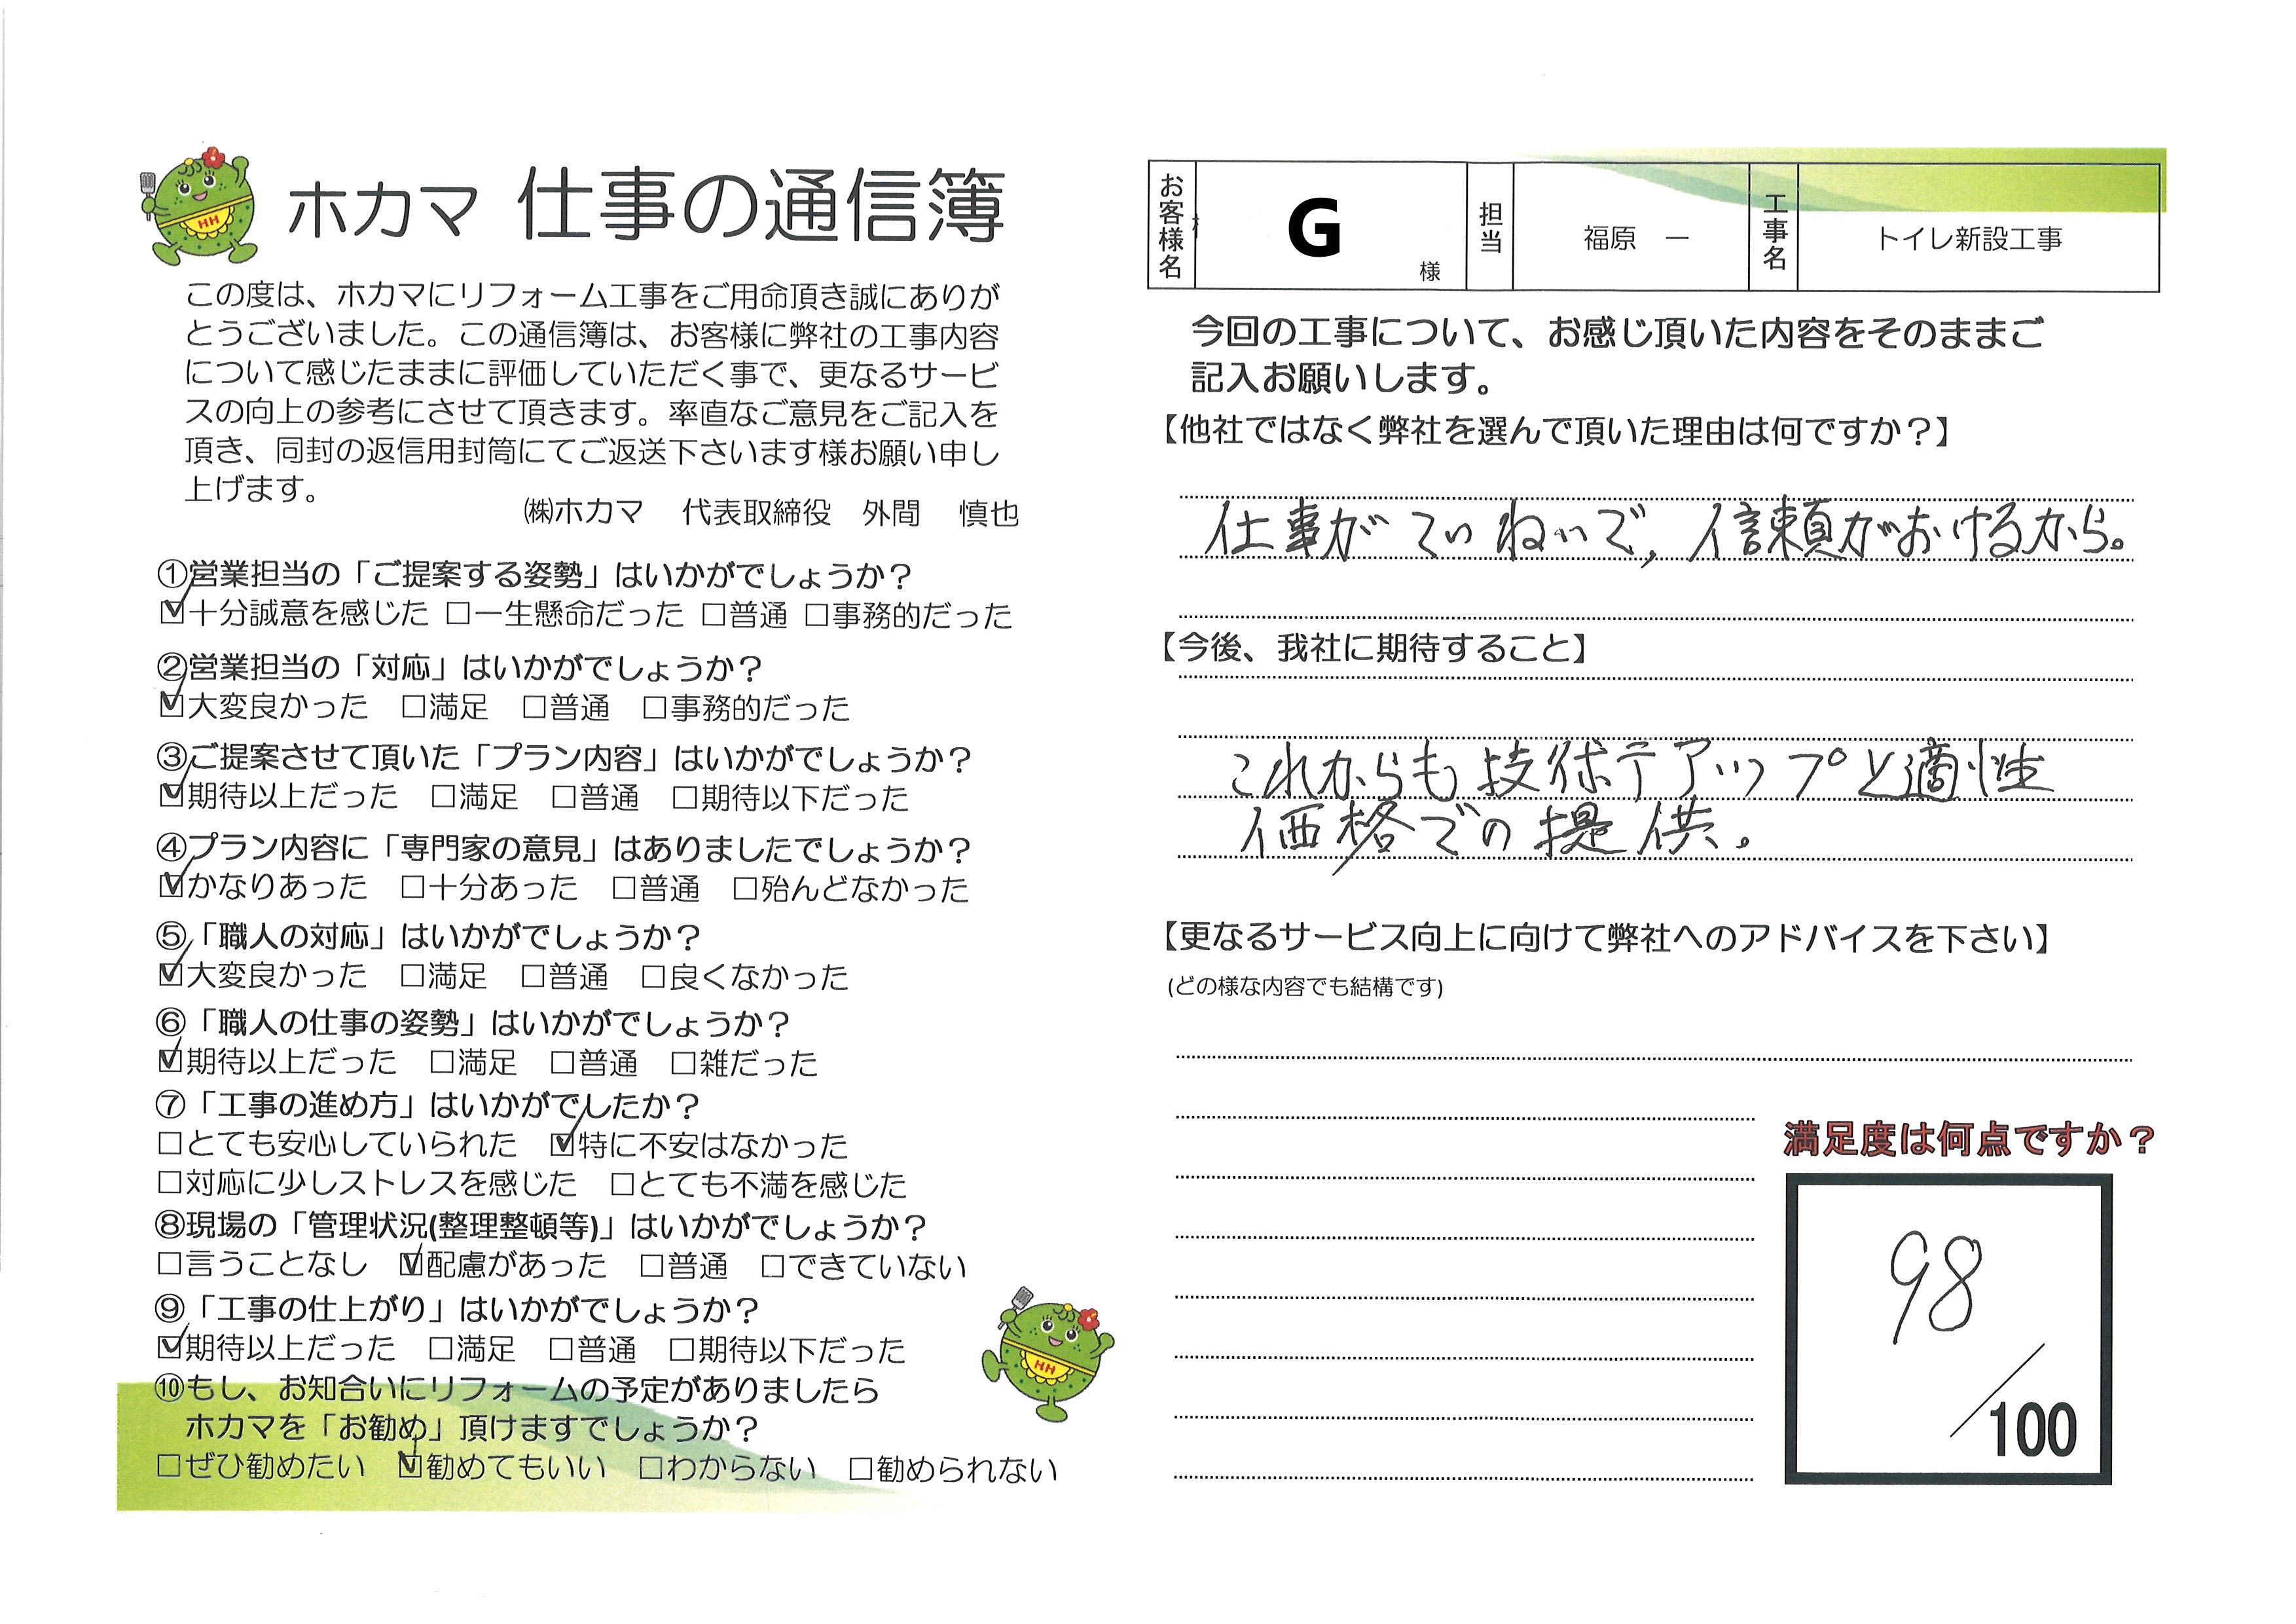 ホカマ 仕事の通信簿
この度は、ホカマにリフォーム工事をご用命頂き誠にありが
とうございました。この通信簿は、お客様に弊社の工事内容
について感じたままに評価していただく事で、更なるサービ
スの向上の参考にさせて頂きます。率直なご意見をご記入を
頂き、同封の返信用封筒にてご返送下さいます様お願い申し
上げます。
㈱ホカマ 代表取締役 外間 慎也
①営業担当の「ご提案する姿勢」はいかがでしょうか？
☑十分誠意を感じた □一生懸命だった □普通 □事務的だった
②営業担当の「対応」はいかがでしょうか？
☑大変良かった □満足 □普通 □事務的だった
③ご提案させて頂いた「プラン内容」はいかがでしょうか？
☑期待以上だった □満足 □普通 □期待以下だった
④プラン内容に「専門家の意見」はありましたでしょうか？
☑かなりあった □十分あった □普通 □殆んどなかった
⑤「職人の対応」はいかがでしょうか？
☑大変良かった □満足 □普通 □良くなかった
⑥「職人の仕事の姿勢」はいかがでしょうか？
☑期待以上だった □満足 □普通 □雑だった
⑦「工事の進め方」はいかがでしたか？
□とても安心していられた ☑特に不安はなかった
□対応に少しストレスを感じた □とても不満を感じた
⑧現場の「管理状況(整理整頓等)」はいかがでしょうか？
□言うことなし ☑配慮があった □普通 □できていない
⑨「工事の仕上がり」はいかがでしょうか？
☑期待以上だった □満足 □普通 □期待以下だった
⑩もし、お知合いにリフォームの予定がありましたら
ホカマを「お勧め」頂けますでしょうか？
□ぜひ勧めたい ☑勧めてもいい □わからない □勧められない
HH
HH
お客様名 G 様 担当 福原 一 工事名 トイレ新設工事
今回の工事について、お感じ頂いた内容をそのままご
記入お願いします。
【他社ではなく弊社を選んで頂いた理由は何ですか？】
仕事がていねいで，信頼がおけるから。
【今後、我社に期待すること】
これからも技術テアップと適性
価格での提供。
【更なるサービス向上に向けて弊社へのアドバイスを下さい】
(どの様な内容でも結構です)
満足度は何点ですか？
98
/100